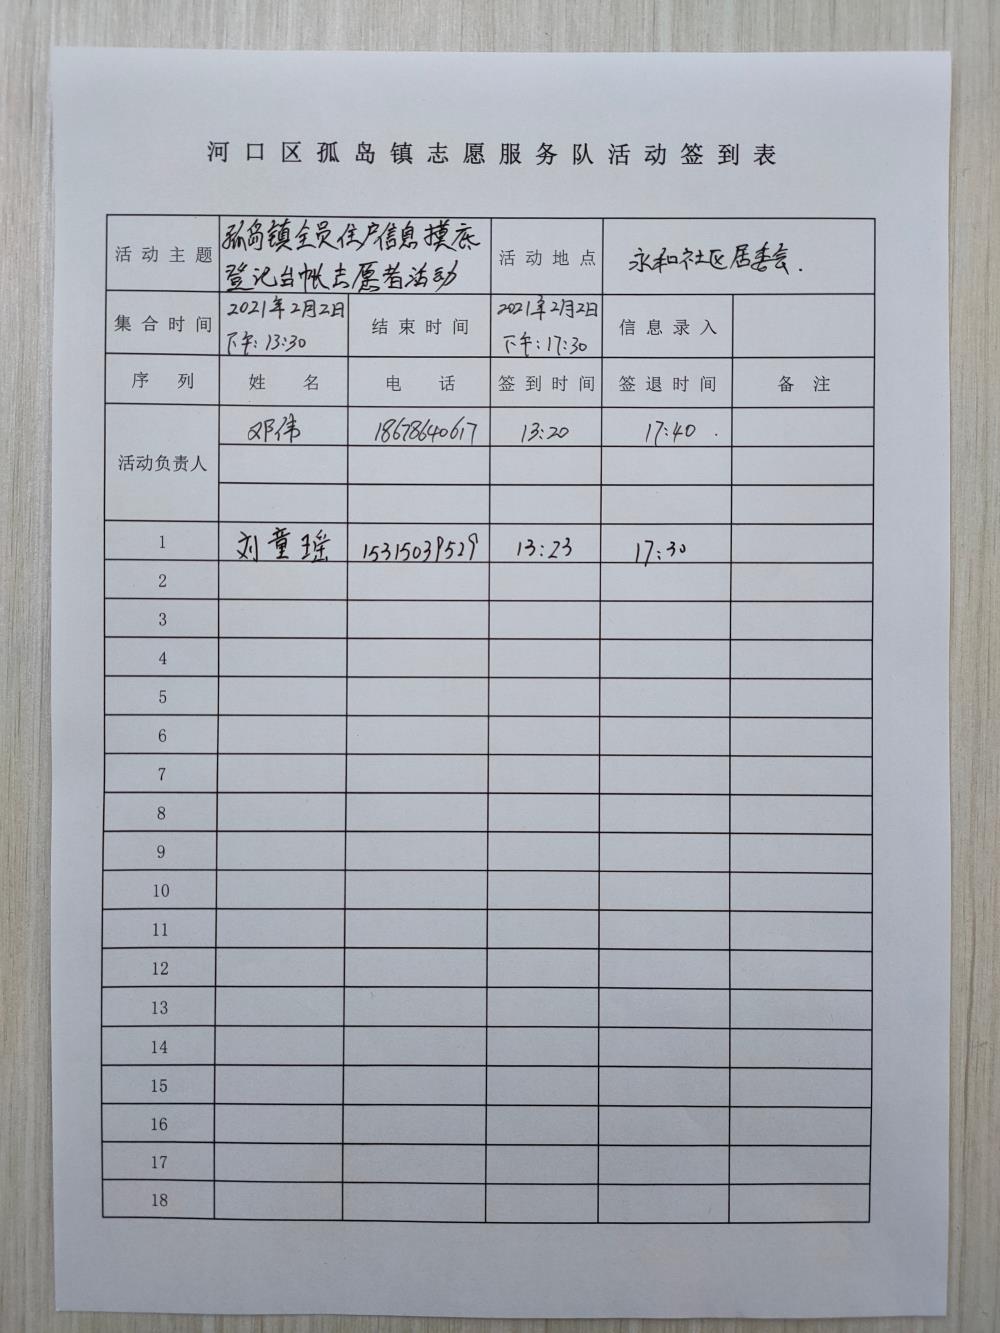 河口区孤岛镇志愿服务队活动签到表
活动主题 孤岛镇全员住户信息摸底 活动地点 永和社区居委会.
登记台帐志愿者活动
集合时间 2021年2月2日 结束时间 2021年2月2日 信息录入
下午:13:30 下午:17:30
序列 姓名 电话 签到时间 签退时间 备注
活动负责人 邓伟 18678640617 13:20 17:40
1 刘童瑶 15315039529 13:23 17:30
2
3
4
5
6
7
8
9
10
11
12
13
14
15
16
17
18